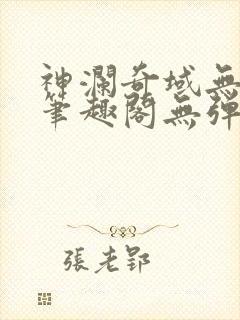 神瀾奇域無
筆趣閣無彈
張老郢